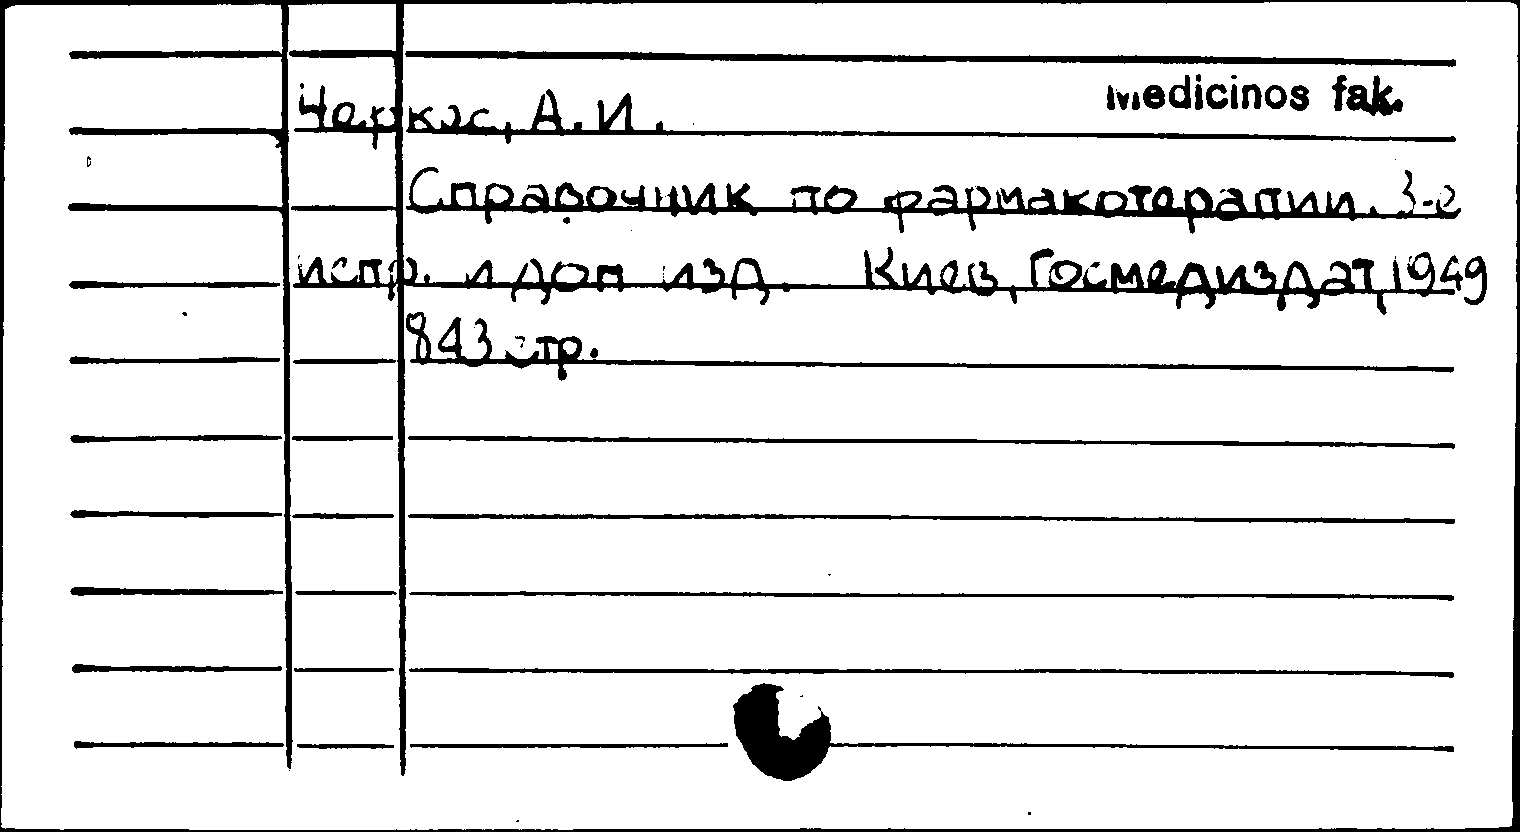 Medicinos fak.
Черкас, А. И.
Справочник по фармакотерапии. 3-е
испр. и доп изд. Киев, Госмедиздат, 1949
843 стр.